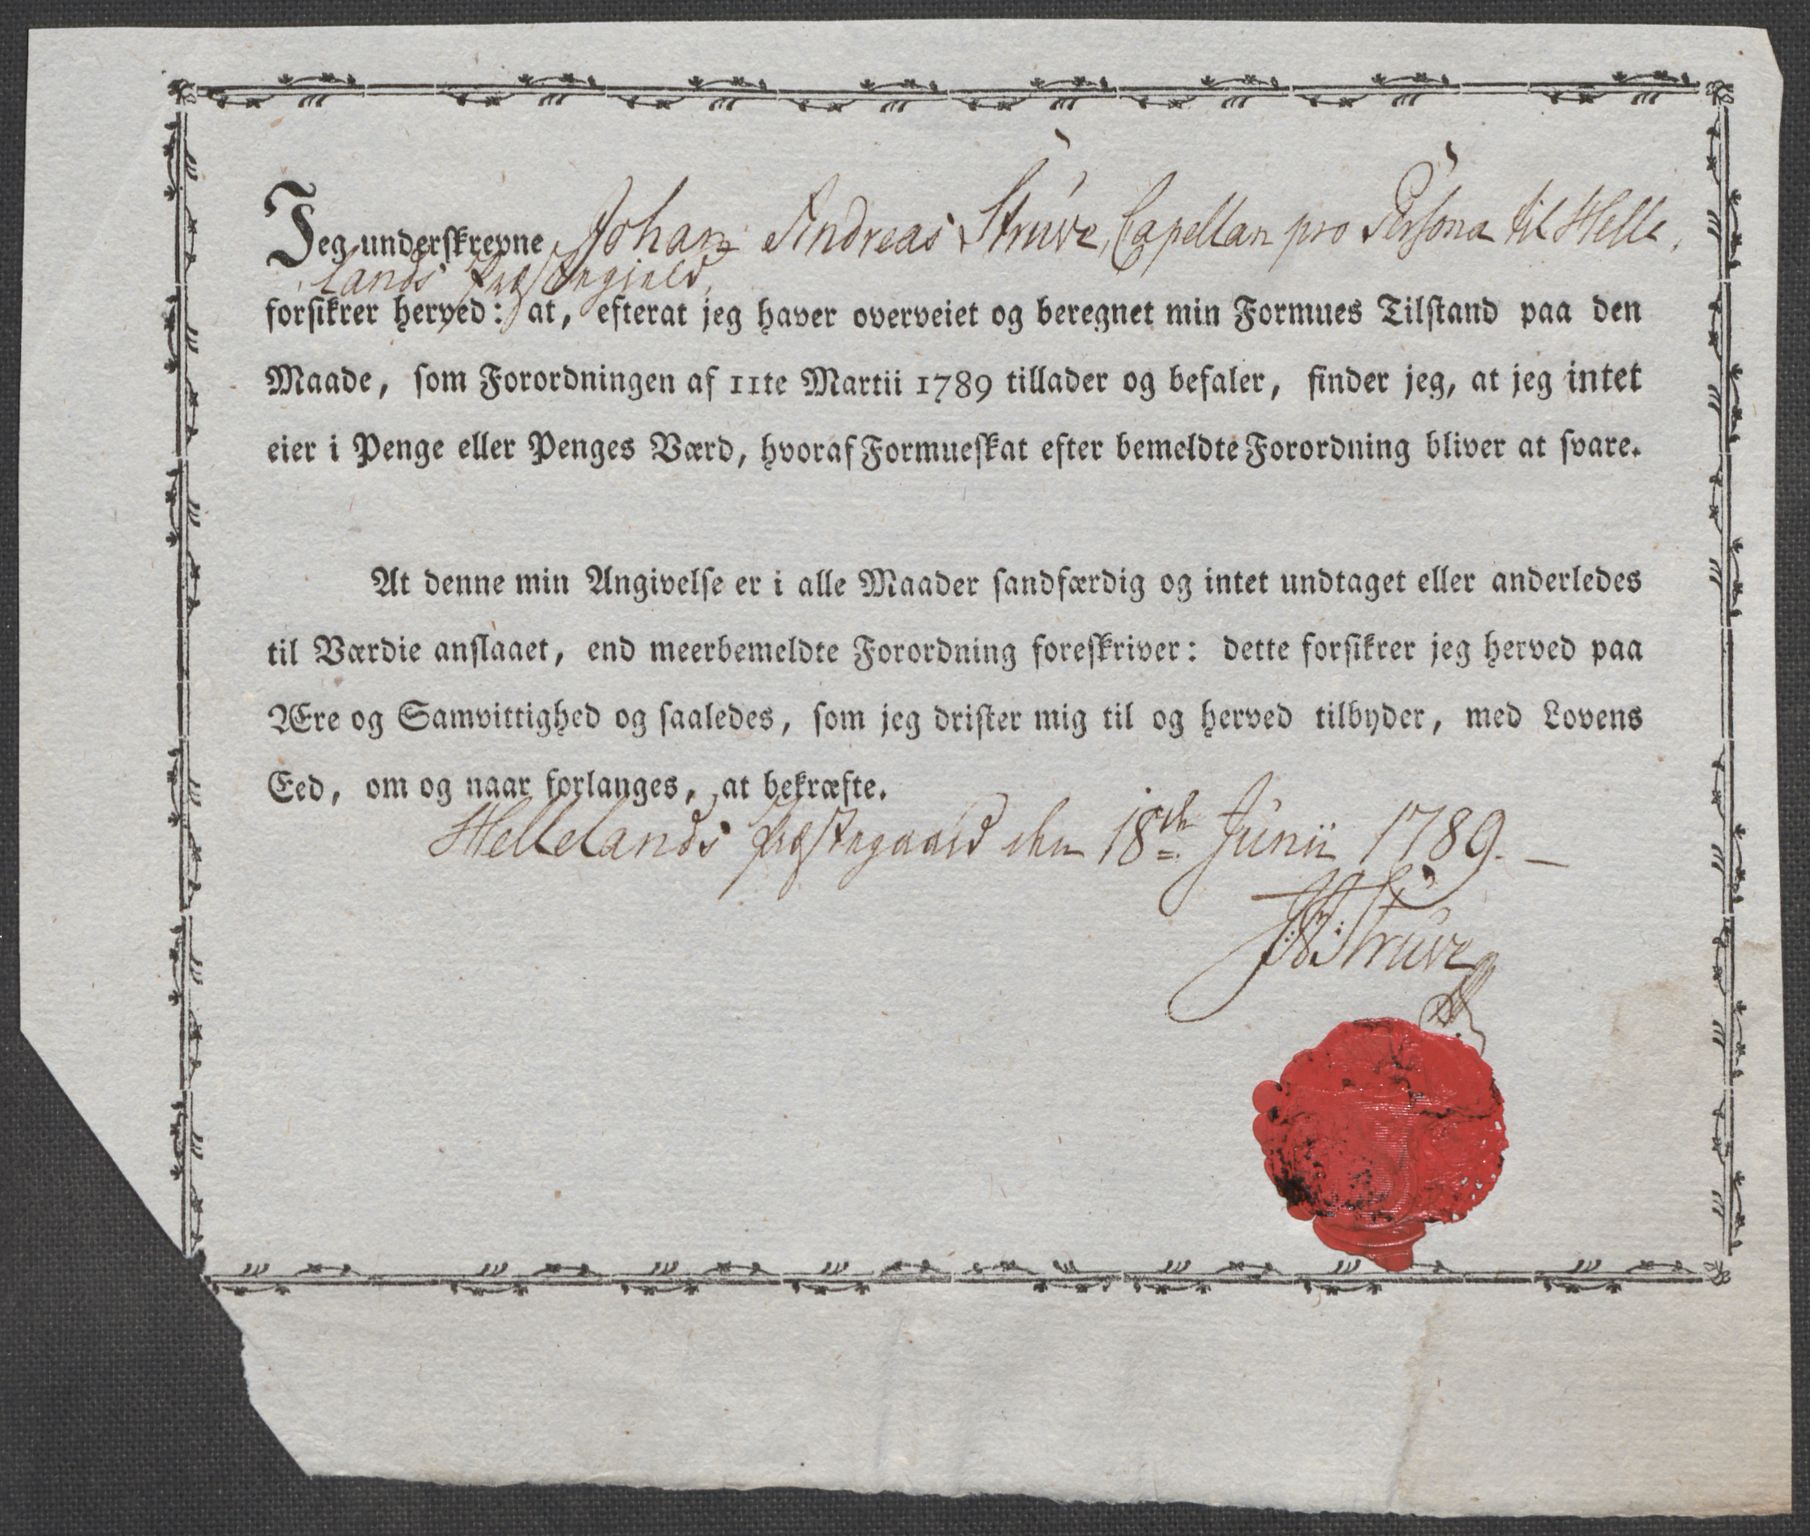 Jeg underskrevne Johan Andreas Struve, Capellan pro Persona til Helle
lands Præstegield,
forsikrer herved: at, efterat jeg haver overveiet og beregnet min Formues Tilstand paa den
Maade, som Forordningen af 11te Martii 1789 tillader og befaler, finder jeg, at jeg intet
eier i Penge eller Penges Værd, hvoraf Formueskat efter bemeldte Forordning bliver at svare.
At denne min Angivelse er i alle Maader sandfærdig og intet undtaget eller anderledes
til Værdie anslaaet, end meerbemeldte Forordning foreskriver: dette forsikrer jeg herved paa
Ære og Samvittighed og saaledes, som jeg drister mig til og herved tilbyder, med Lovens
Eed, om og naar forlanges, at bekræfte.
Hellelands Præstegaard den 18de Junii 1789. —
J:A:Struve